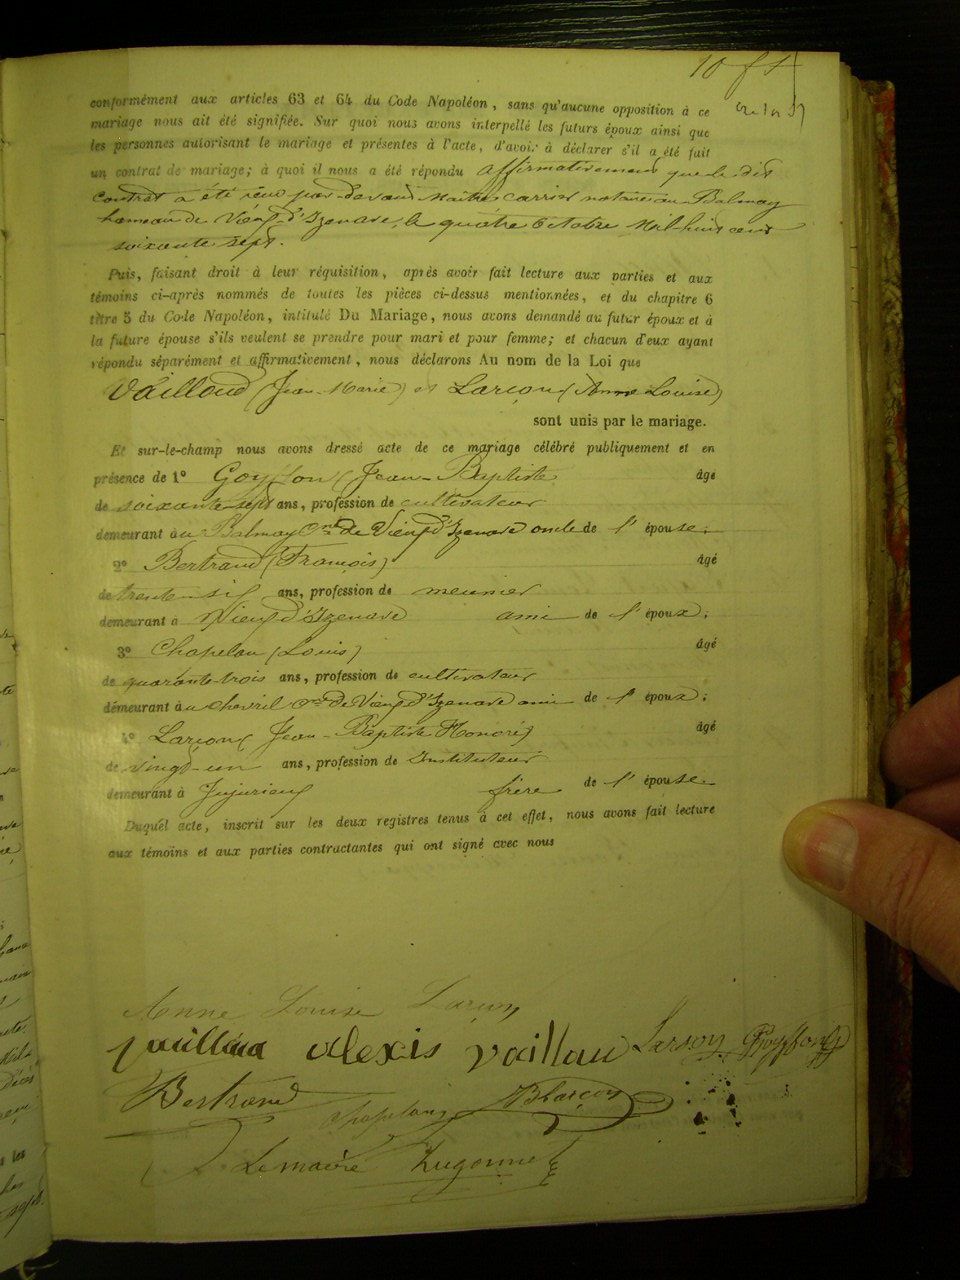 10
conformément aux articles 63 et 64 du Code Napoléon, sans qu'aucune opposition à ce
mariage nous ait été signifiée. Sur quoi nous avons interpellé les futurs époux ainsi que
les personnes autorisant le mariage et présentes à l'acte, d'avoir à déclarer s'il a été fait
un contrat de mariage; à quoi il nous a été répondu affirmativement que le dit
contrat a été reçu par-devant Maître Carrier notaire au Balmay
hameau de Vieu-d'Izenave, le quatre Octobre Mil huit cent
soixante sept.
Puis, faisant droit à leur réquisition, après avoir fait lecture aux parties et aux
témoins ci-après nommés de toutes les pièces ci-dessus mentionnées, et du chapitre 6
titre 5 du Code Napoléon, intitulé Du Mariage, nous avons demandé au futur époux et à
la future épouse s'ils veulent se prendre pour mari et pour femme; et chacun d'eux ayant
répondu séparément et affirmativement, nous déclarons Au nom de la Loi que
Vailloud (Jean-Marie) et Larçon (Anne Louise)
sont unis par le mariage.
Et sur-le-champ nous avons dressé acte de ce mariage célébré publiquement et en
présence de 1° Goyffon (Jean-Baptiste âgé
de soixante-sept ans, profession de cultivateur
demeurant au Balmay Cne de Vieu-d'Izenave oncle de l'épouse;
2° Bertrand (François) âgé
de trente-six ans, profession de meunier
demeurant à Vieu-d'Izenave ami de l'époux;
3° Chapelan (Louis) âgé
de quarante-trois ans, profession de cultivateur
demeurant au Chevril Cne de Vieu-d'Izenave ami de l'époux;
4° Larçon (Jean-Baptiste Honoré) âgé
de vingt-un ans, profession de Instituteur
demeurant à Jujurieux frère de l'épouse.
Duquel acte, inscrit sur les deux registres tenus à cet effet, nous avons fait lecture
aux témoins et aux parties contractantes qui ont signé avec nous
Anne Louise Larçon
vailloud alexis vaillou Larçon Goyffon
Bertrand JB Larçon
Lemaire Hugonnet